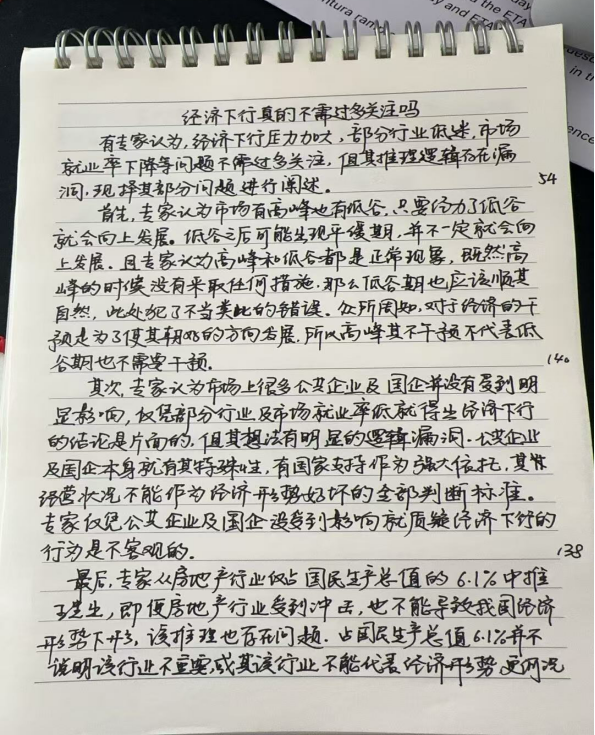 day
ntura ran
the ETA
y and ETA
uest
in th
ence
经济下行真的不需过多关注吗
有专家认为,经济下行压力加大,部分行业低迷,市场
就业率下降等问题不需过多关注,但其推理逻辑存在漏
洞,现择其部分问题进行阐述。
54
首先,专家认为市场有高峰也有低谷,只要经力了低谷
就会向上发展。低谷之后可能出现平缓期,并不一定就会向
上发展。且专家认为高峰和低谷都是正常现象,既然高
峰的时候没有采取任何措施,那么低谷期也应该顺其
自然,此处犯了不当类比的错误。众所周知,对于经济的干
预是为了使其朝好的方向发展,所以高峰其不干预不代表低
谷期也不需要干预。
140
其次,专家认为市场上很多公共企业及国企并没有受到明
显影响,仅凭部分行业及市场就业率低就得出经济下行
的结论是片面的,但其想法有明显的逻辑漏洞。公共企业
及国企本身就有其特殊性,有国家支持作为强大依托,其
经营状况不能作为经济形势好坏的全部判断标准。
专家仅凭公共企业及国企没受到影响就质疑经济下行的
行为是不客观的。
138
最后,专家从房地产行业仅占国民生产总值的6.1%中推
出,即便房地产行业受到冲击,也不能导致我国经济
形势下行,该推理也存在问题。占国民生产总值6.1%并不
说明该行业不重要,或其该行业不能代表经济形势,更何况